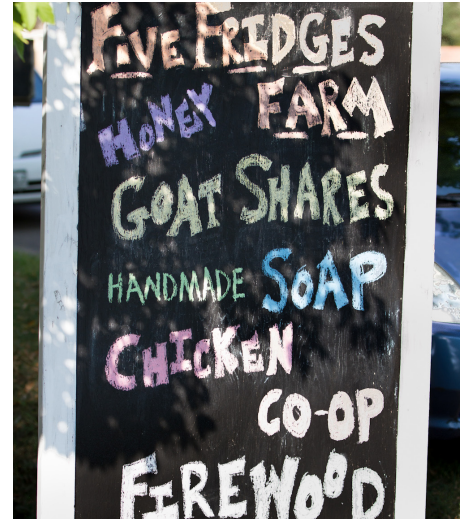 FIVE FRIDGES
FARM
HONEY
GOAT SHARES
HANDMADE SOAP
CHICKEN
CO-OP
FIREWOOD